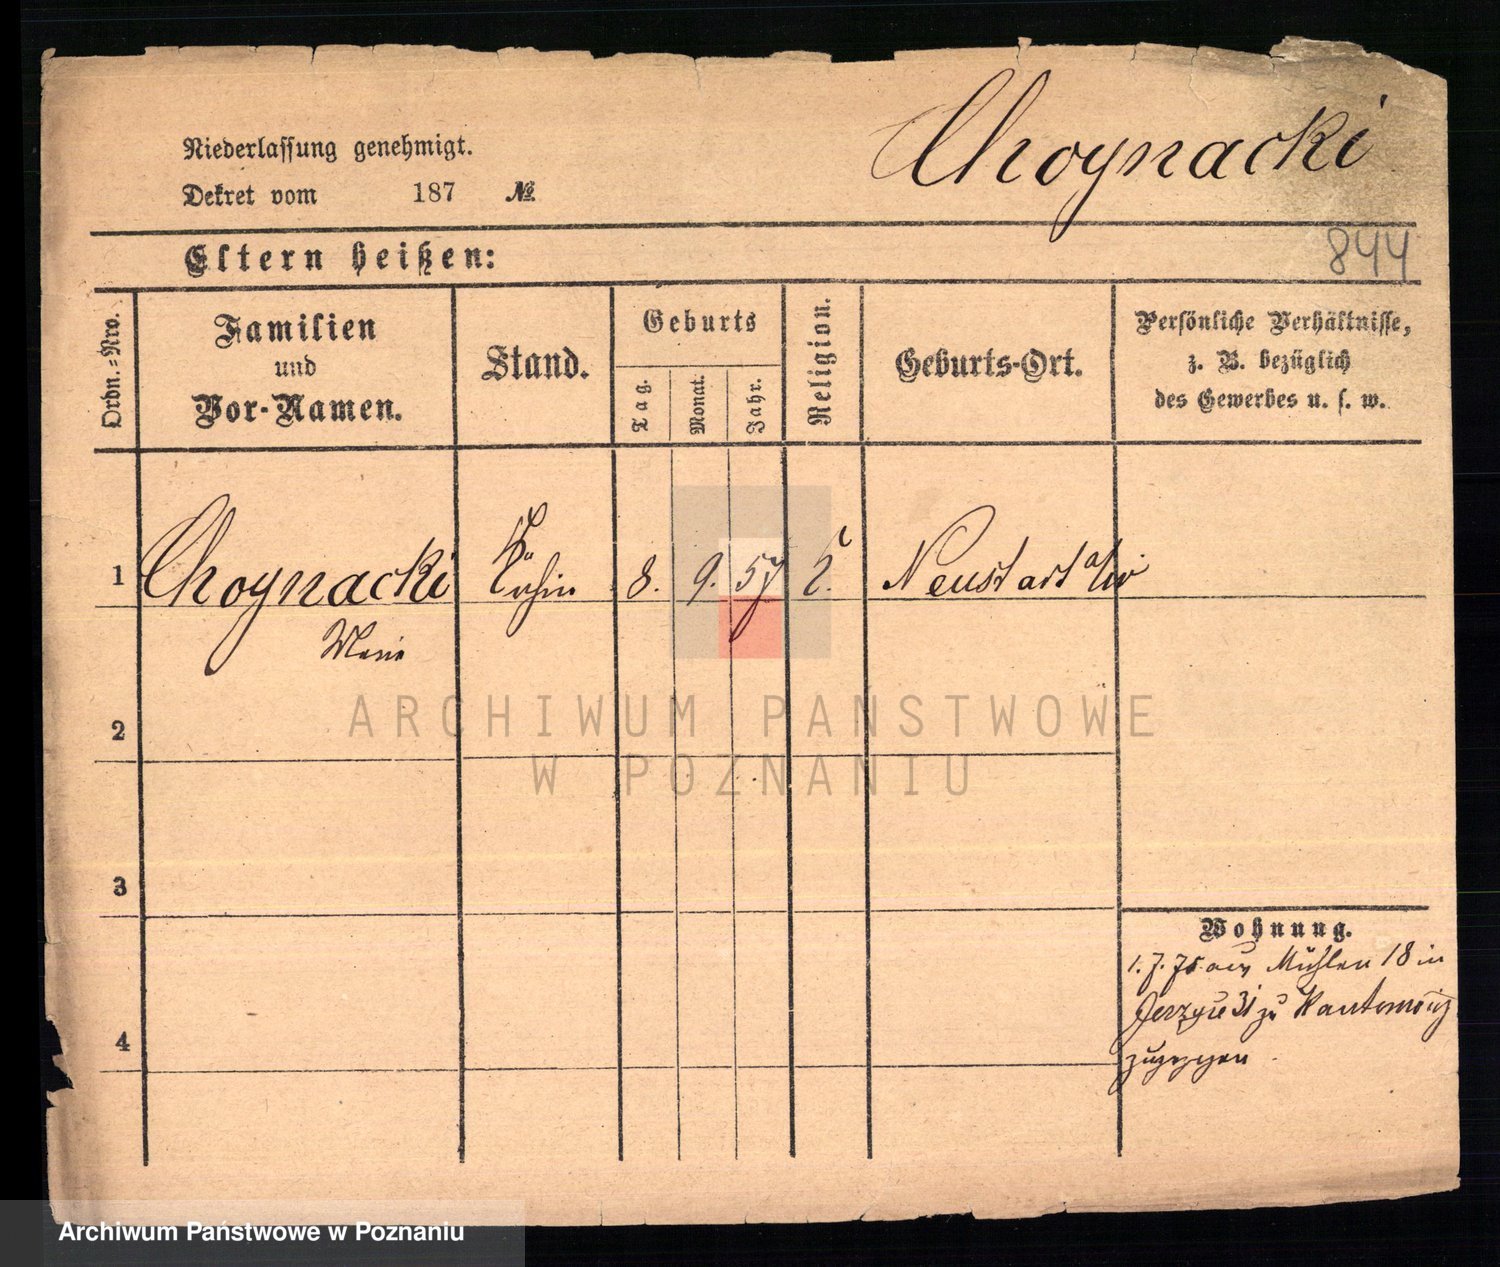 Choynacki
Niederlassung genehmigt.
Dekret vom 187 №
Eltern heißen:
844
Ordn.=Nro.
Familien
und
Vor-Namen.
Stand.
Geburts
Tag.
Monat.
Jahr.
Religion.
Geburts-Ort.
Persönliche Verhältnisse,
z. B. bezüglich
des Gewerbes u. s. w.
1
Choynacki
8. 9. 57
Neustadt a/W
2
3
4
Wohnung.
1. 7. 75 aus Mühlen 18 in
31 zu
zugezogen
ARCHIWUM PAŃSTWOWE
W POZNANIU
Archiwum Państwowe w Poznaniu